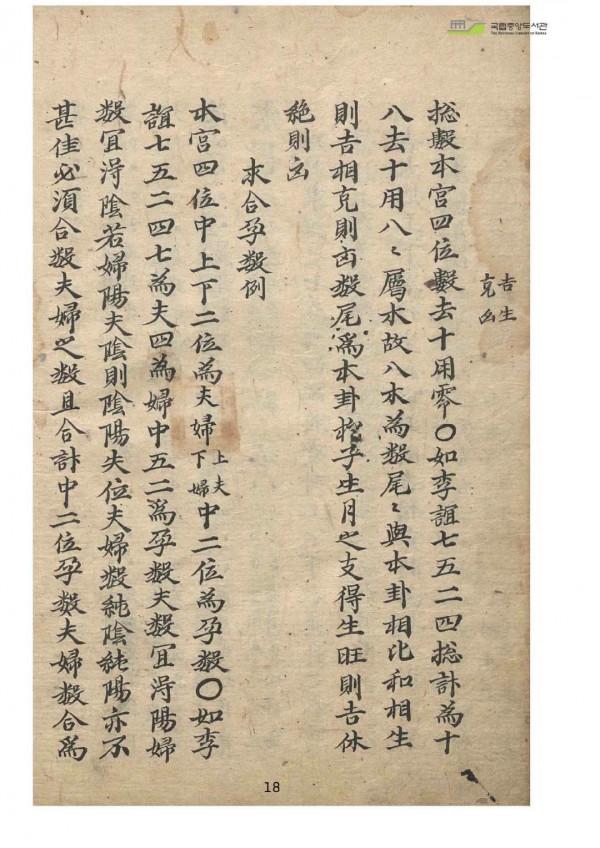 국립중앙도서관
THE NATIONAL LIBRARY OF KOREA
吉生
克凶
捴數本宮四位數去十用零〇如李誼七五二四捴計為十
八去十用八〻屬木故八木為數尾〻與本卦相比和相生
則吉相克則凶數尾爲本卦搃子生月之支得生旺則吉休
絶則凶
求合孕數例
本宮四位中上下二位為夫婦上夫下婦中二位為孕數〇如李
誼七五二四七為夫四為婦中五二爲孕數夫數冝淂陽婦
數冝淂陰若婦陽夫陰則陰陽失位夫婦數純陰純陽亦不
甚佳必須合數夫婦之數且合計中二位孕數夫婦數合為
18